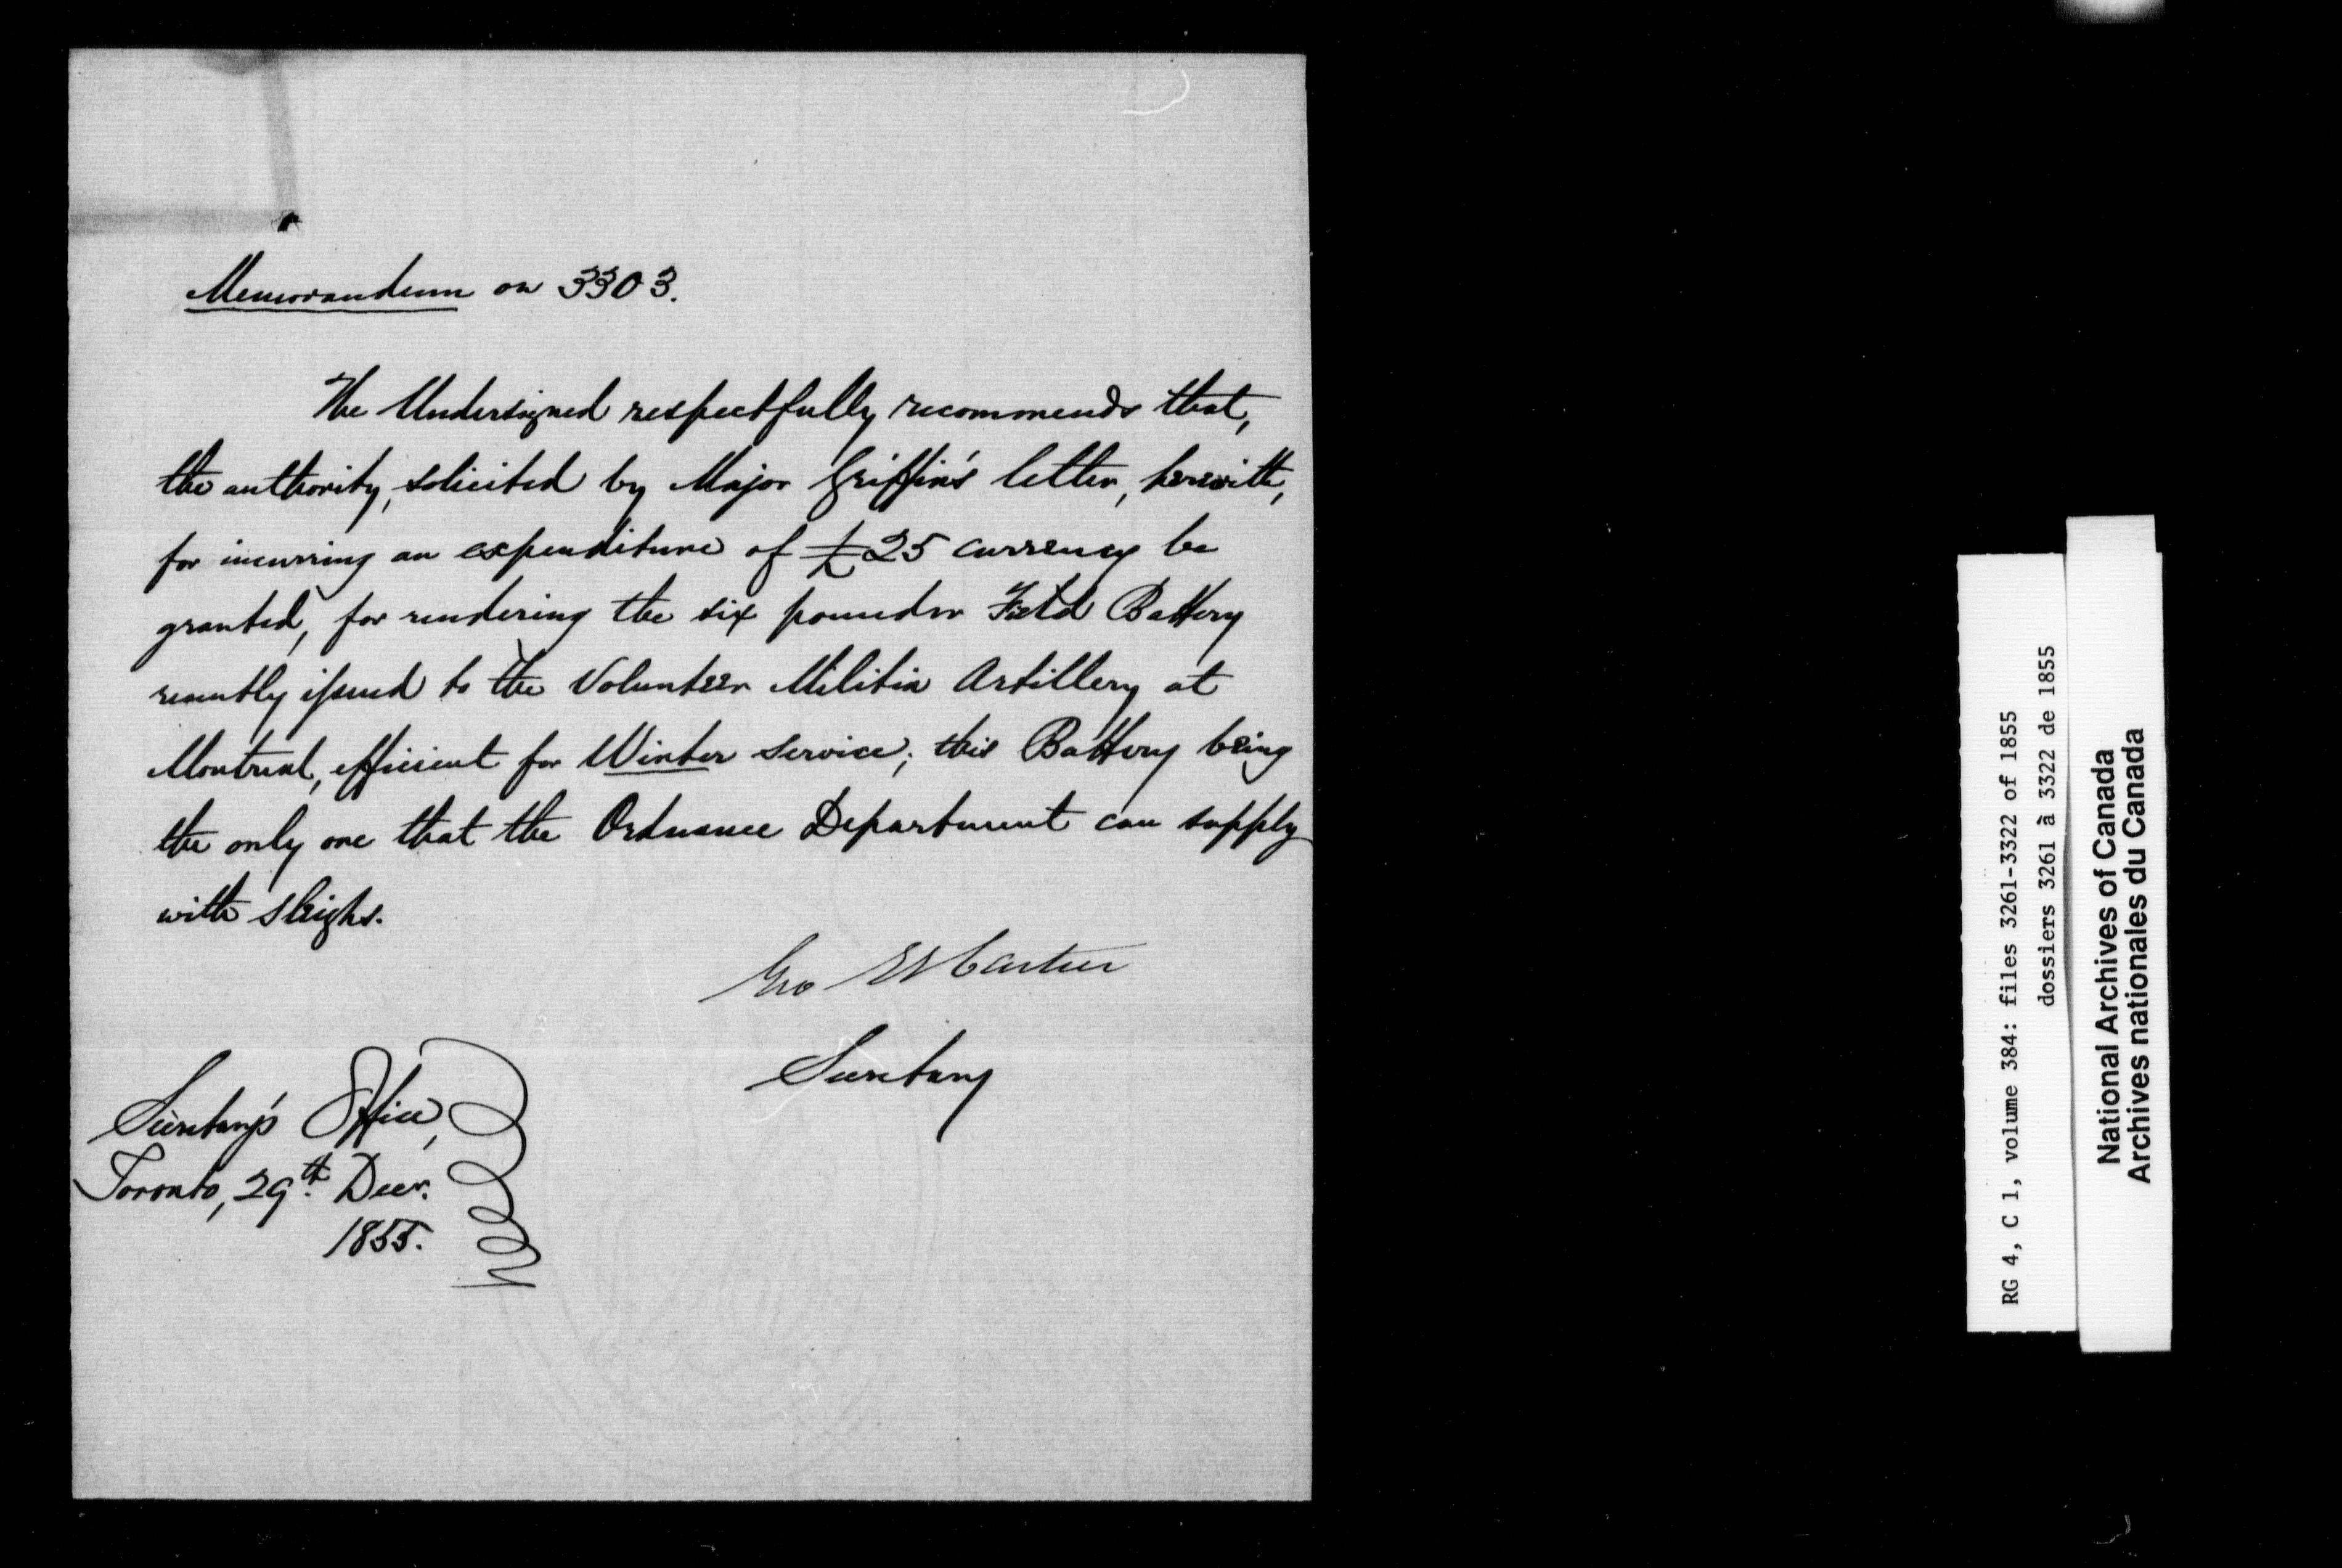 Memorandum on 3303.
The Undersigned respectfully recommends that,
the authority, solicited by Major Griffin's letter, herewith,
for incurring an expenditure of £25 currency be
granted, for rendering the six pounder Field Battery
recently issued to the Volunteer Militia Artillery at
Montreal, efficient for Winter service; this Battery being
the only one that the Ordnance Department can supply
with sleighs.
Geo Et Cartier
Secretary
Secretary's Office,
Toronto, 29th. Decr.
1855.
RG 4, C 1, volume 384: files 3261-3322 of 1855
dossiers 3261 à 3322 de 1855
National Archives of Canada
Archives nationales du Canada